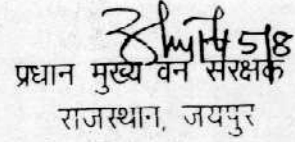 प्रधान मुख्य वन संरक्षक
राजस्थान, जयपुर